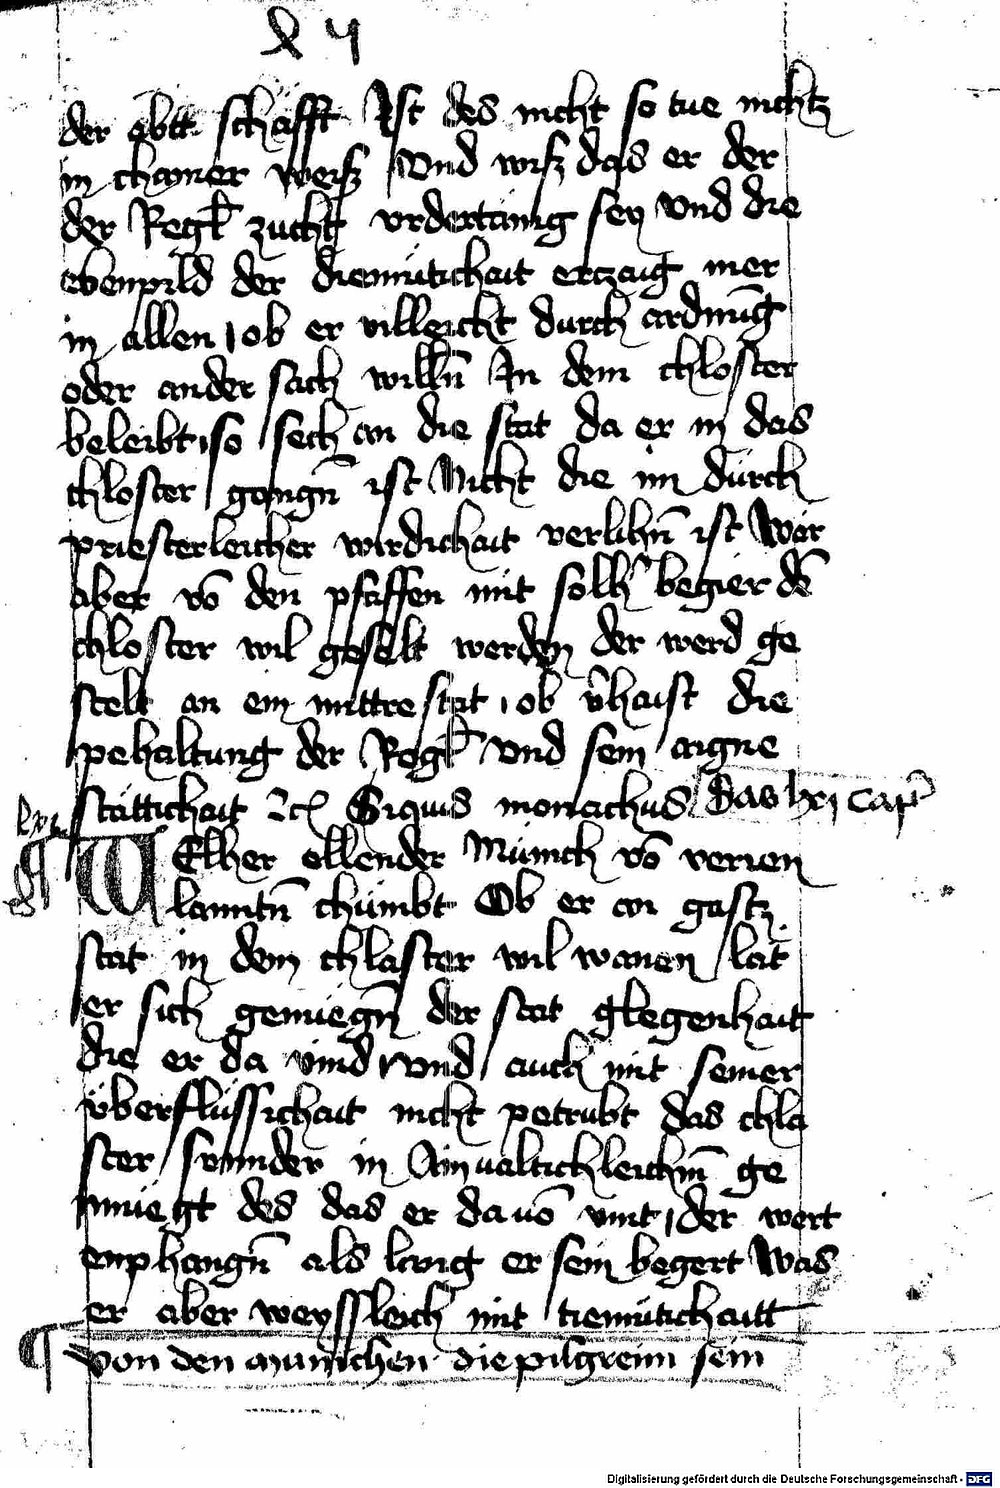 der abtt schafft Ist des nicht so tue nichtz
in chainer weisz Vnd wisz das er der
der Regl̄ zucht vndertänig sey vnd die
ebenpild der diemütichait erczaig mer
in allen / ob er villeicht durch ordnūg
oder ander sach willn̄ In dem chloster
beleibt / so sech an die stat da er in das
chloster gangn̄ ist Nicht die im durch
priesterleicher wirdichait verlihn̄ ist Wär
aber vō den pfaffen mit sollr̄ begier dē
chloster wil geselt werden der werd ge
stelt an ein mittre stat / ob v̄haist die
pehaltung der Regl̄ vnd sein aigne
stättichait Siquis monachus das lxj cap̄
lxj
WElher ellender Münich vō verren
lanntn̄ chümbt Ob er an gastz
stat in dem chlaster wil wonen / lät
er sich genüegn̄ der stat glegenhait
die er da vind vnd auch mit seiner
vberflüssichait nicht petrübt das chla
ster / sunnder in Ainualtichleichn̄ ge
nüegt des das er da uō vint / der wert
enphangn̄ als lang er sein begert Was
er aber weyssleich mit tiemütichaitt
von den munichen die pilgreim sein
Digitalisierung gefördert durch die Deutsche Forschungsgemeinschaft - DFG